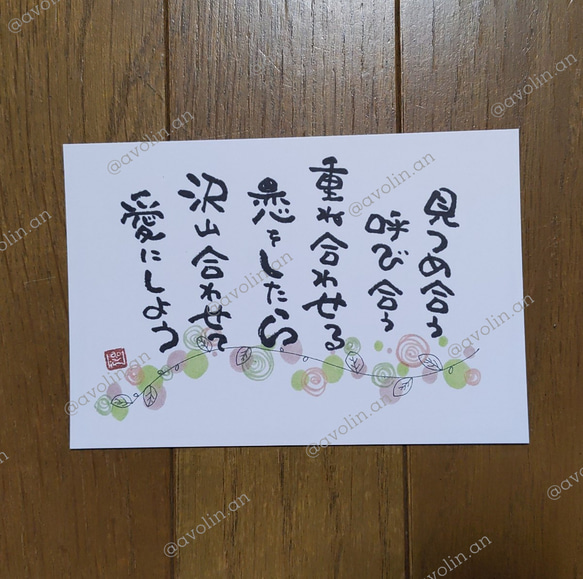 見つめ合う
呼び合う
重ね合わせる
恋をしたら
沢山合わせて
愛にしよう
@avolin.an
@avolin.an
@avolin.an
@avolin.an
@avolin.an
@avolin.an
@avolin.an
@avolin.an
@avolin.an
@avolin.an
@avolin.an
@avolin.an
@avolin.an
@avolin.an